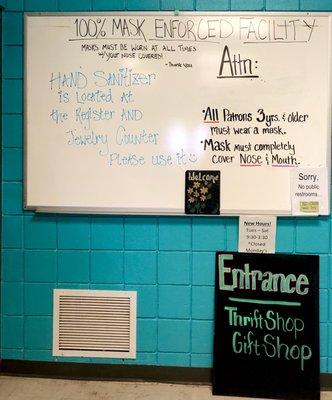 100% MASK ENFORCED FACILITY
MASKS MUST BE WORN AT ALL TIMES
w/YOUR NOSE COVERED!
*Thank You
Attn:
HAND SANITIZER
is Located At
the Register AND
Jewelry Counter
Please use it
•All Patrons 3yrs. & older
must wear a mask.
•Mask must completely
cover Nose & Mouth.
Welcome
Sorry,
No public
restrooms..
New Hours!
Tues - Sat
9:30-3:30
*Closed
Monday's
Entrance
Thrift Shop
Gift Shop